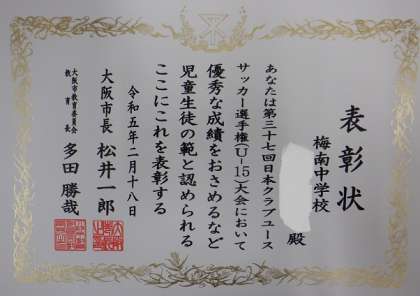 表彰状
梅南中学校
殿
あなたは第三十七回日本クラブユース
サッカー選手権(U-15)大会において
優秀な成績をおさめるなど
児童生徒の範と認められる
ここにこれを表彰する
令和五年二月十八日
大阪市長 松井一郎
大阪市教育委員会
教育長 多田勝哉